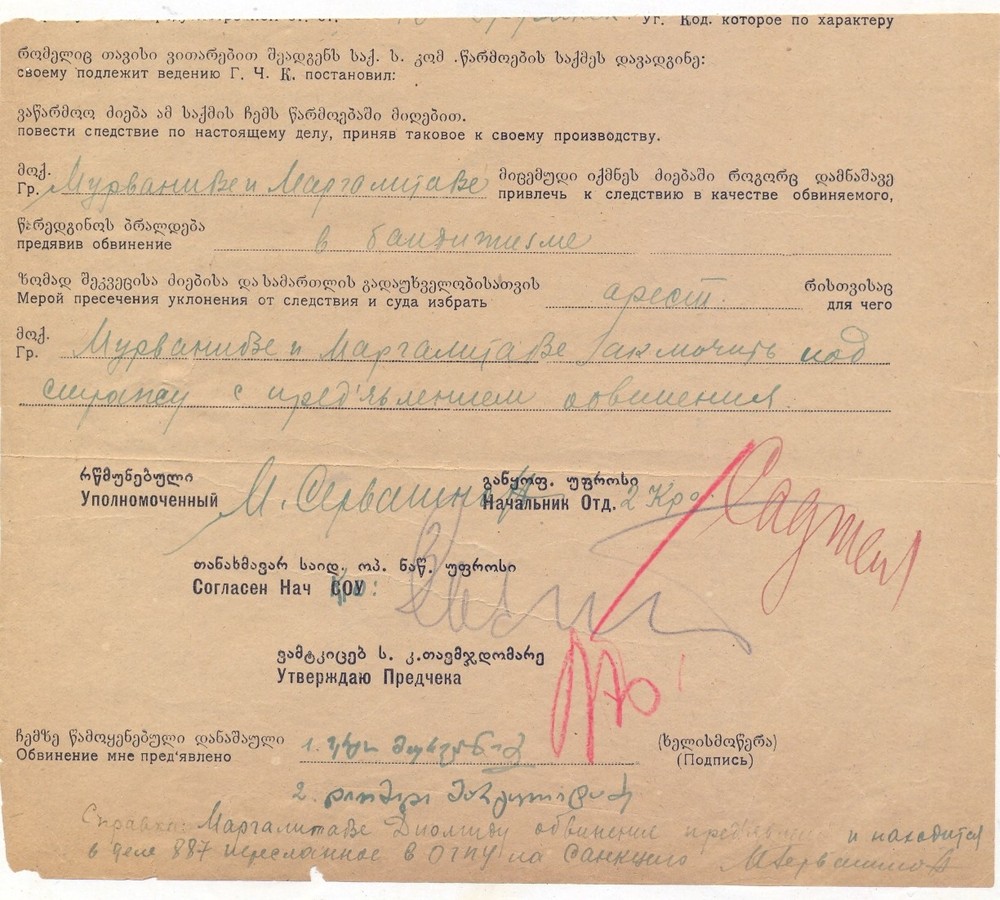 Уг. Код. которое по характеру
რომელიც თავისი ვითარებით შეადგენს საქ. ს. კომ. წარმოების საქმეს დავადგინე:
своему подлежит ведению Г. Ч. К. постановил:
ვაწარმოო ძიება ამ საქმის ჩემს წარმოებაში მიღებით.
повести следствие по настоящему делу, приняв таковое к своему производству.
მოქ. მიცემული იქმნეს ძიებაში როგორც დამნაშავე
Гр. Мурванидзе и Маргалитадзе привлечь к следствию в качестве обвиняемого,
წარედგინოს ბრალდება
предявив обвинение в бандитизме
ზომად შეკვეცისა ძიებისა და სამართლის გადაუხველობისათვის რისთვისაც
Мерой пресечения уклонения от следствия и суда избрать арест. для чего
მოქ.
Гр. Мурванидзе и Маргалитадзе заключить под
стражу с пред'явлением обвинения.
რწმუნებული განყოფ. უფროსი
Уполномоченный Начальник Отд. 2
თანახმავარ საიდ. ოპ. ნაწ. უფროსი
Согласен Нач СОУ
ვამტკიცებ ს. კ. თავმჯდომარე
Утверждаю Предчека
ჩემზე წამოყენებული დანაშაული (ხელისმოწერა)
Обвинение мне пред'явлено 1. (Подпись)
2.
Справка: Маргалитадзе обвинение и находится
в деле 887 пересланное в ОГПУ на Санкцию